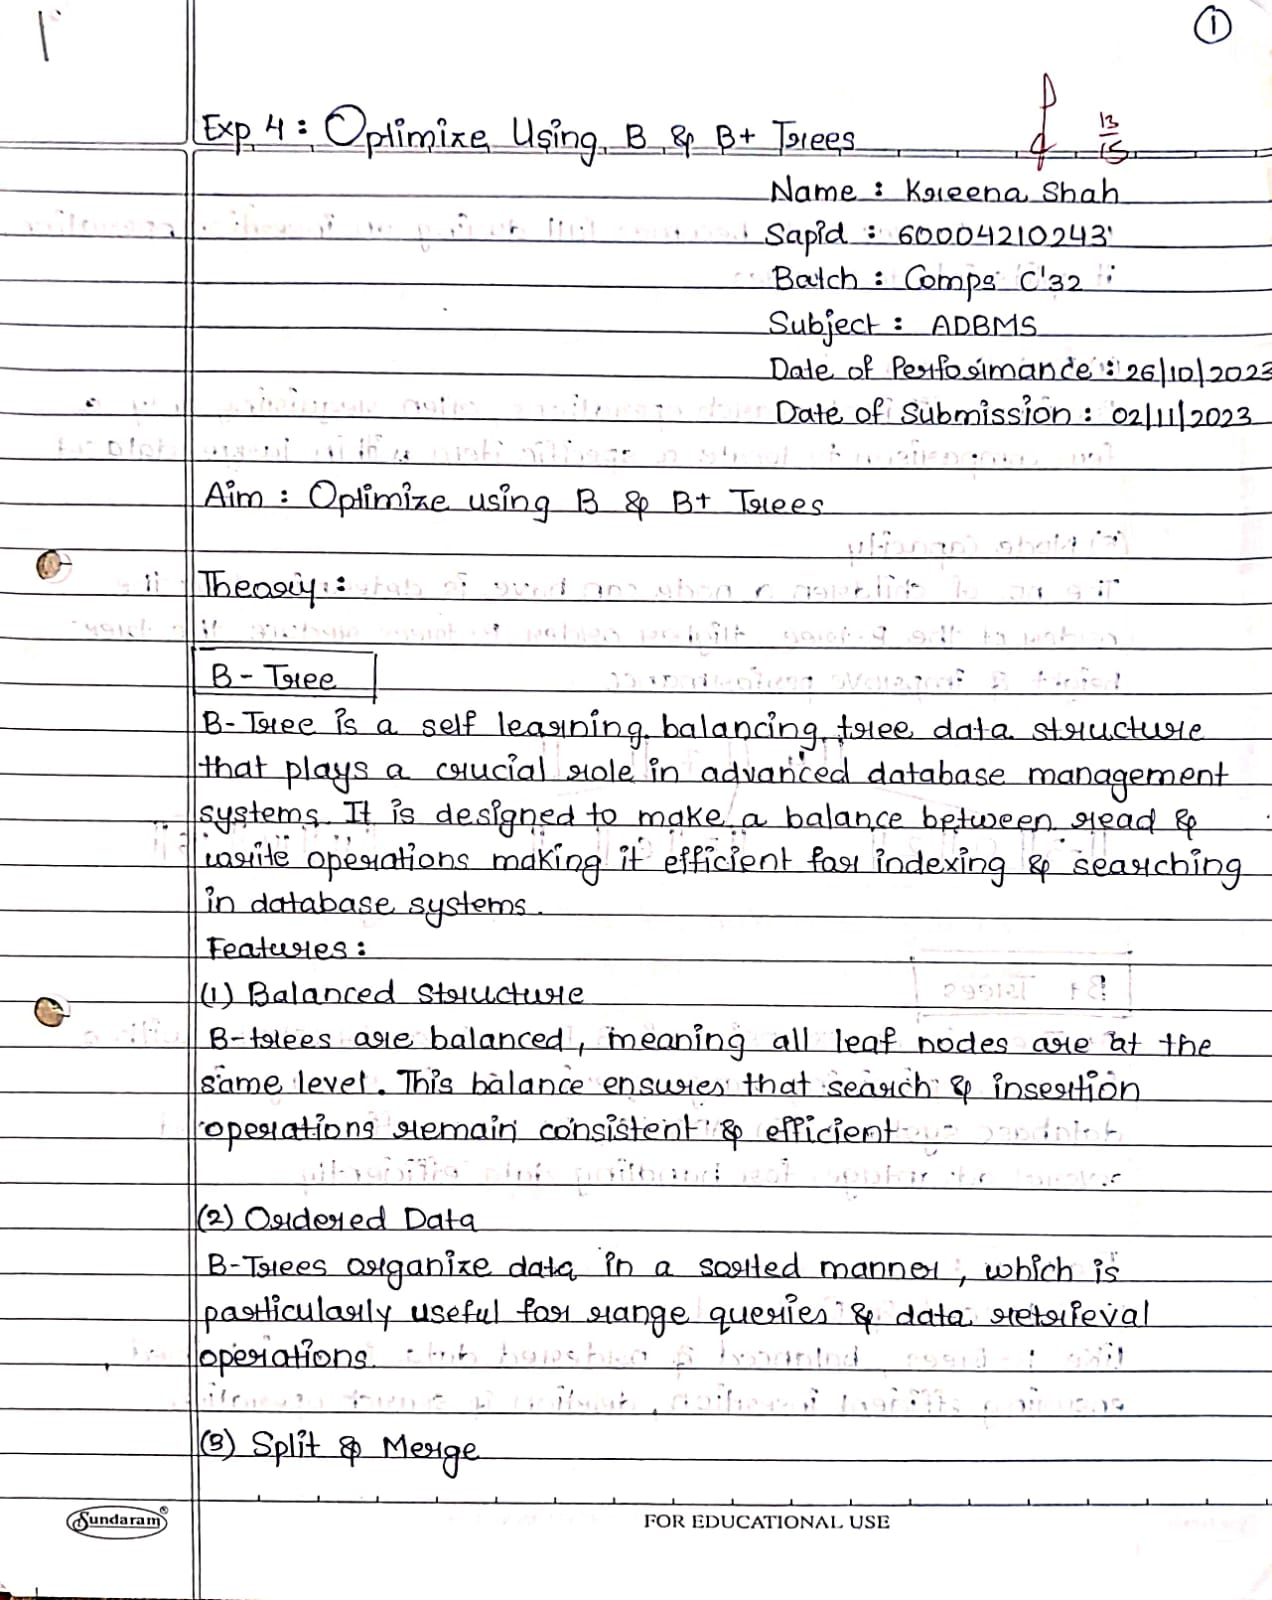 1
Exp 4 : Optimize Using B & B+ Trees
13
15
Name : Kreena Shah
Sapid : 60004210243
Batch : Comps C'32
Subject : ADBMS
Date of Performance : 26/10/2023
Date of Submission : 02/11/2023
Aim : Optimize using B & B+ Trees
Theory :
B - Tree
B-Tree is a self learning balancing tree data structure
that plays a crucial role in advanced database management
systems. It is designed to make a balance between read &
write operations making it efficient for indexing & searching
in database systems.
Features :
(1) Balanced Structure
B-trees are balanced, meaning all leaf nodes are at the
same level. This balance ensures that search & insertion
operations remain consistent & efficient
(2) Ordered Data
B-Trees organize data in a sorted manner, which is
particularly useful for range queries & data retrieval
operations.
(3) Split & Merge
Sundaram®
FOR EDUCATIONAL USE